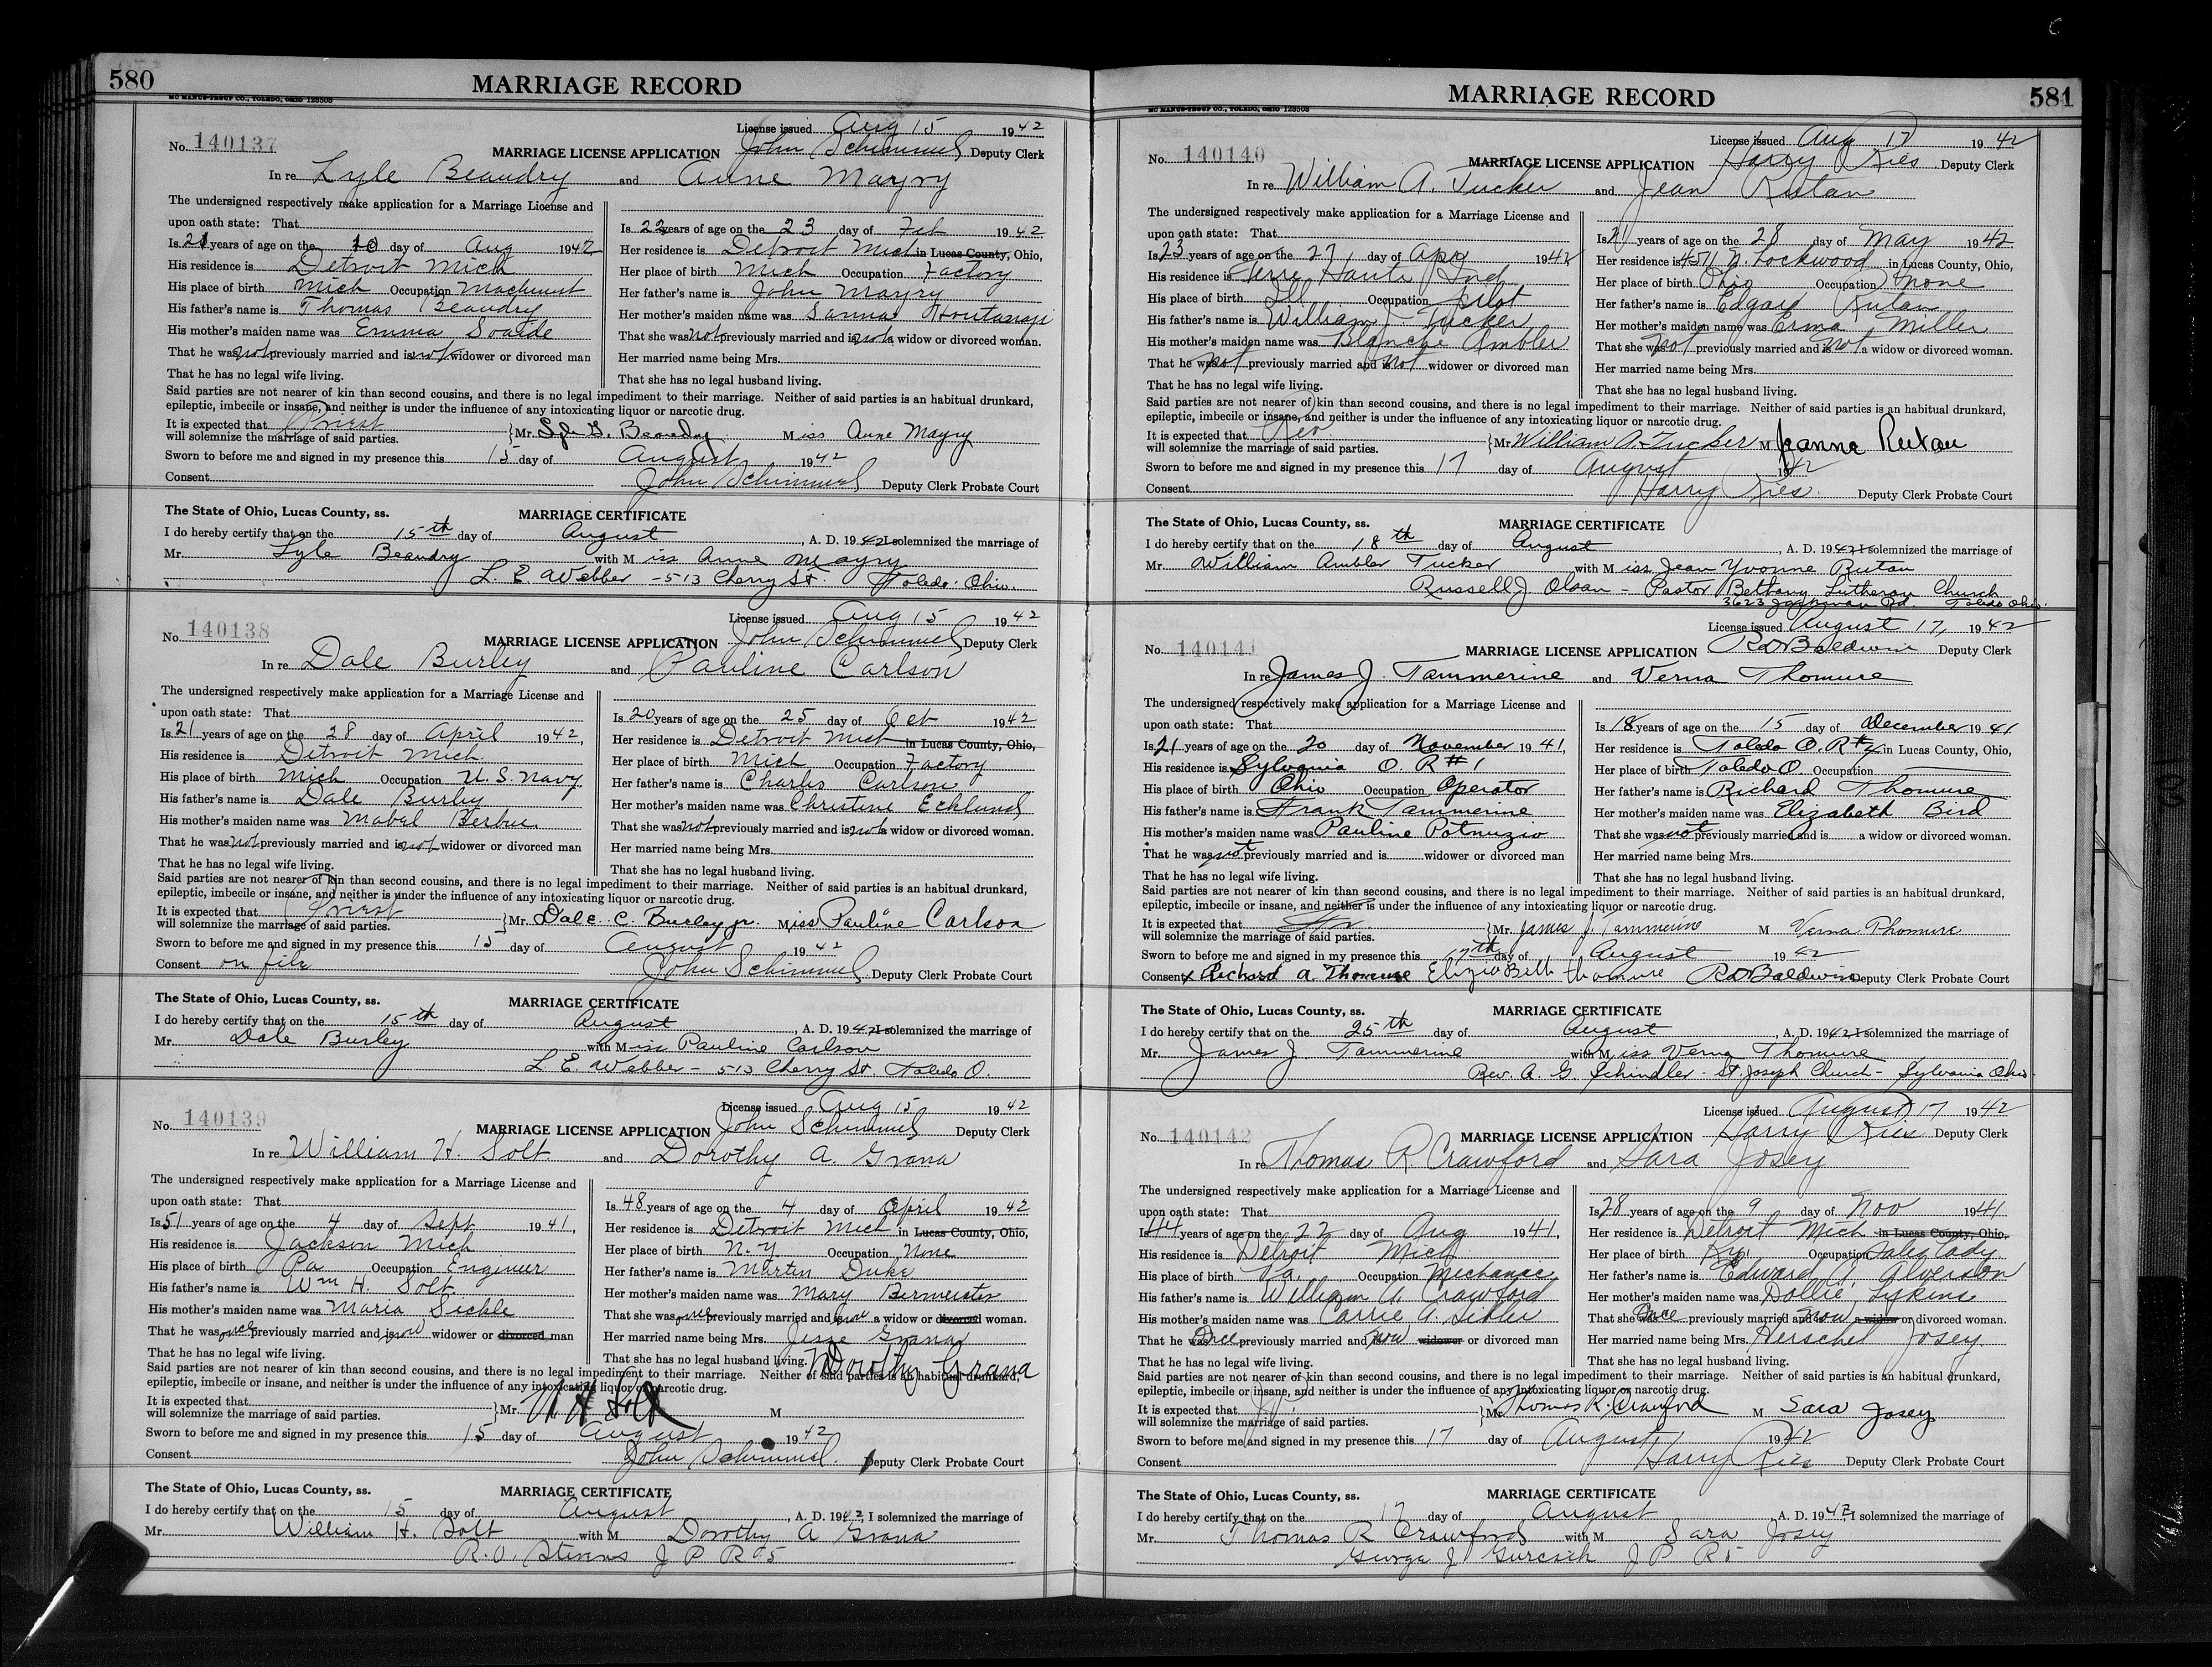 580
MARRIAGE RECORD
MC MANUS-TROUP CO., TOLEDO, OHIO 128503
License issued Aug 15 1942
No. 140137
MARRIAGE LICENSE APPLICATION John Schimmel Deputy Clerk
In re Lyle Beaudry and Anne Mayry
The undersigned respectively make application for a Marriage License and
upon oath state: That
Is 21 years of age on the 10 day of Aug 1942
His residence is Detroit Mich
His place of birth Mich Occupation Machinist
His father's name is Thomas Beaudry
His mother's maiden name was Emma Soalde
That he was not previously married and is not widower or divorced man
That he has no legal wife living.
Is 22 years of age on the 23 day of Feb 1942
Her residence is Detroit Mich in Lucas County, Ohio,
Her place of birth Mich Occupation Factory
Her father's name is John Mayry
Her mother's maiden name was Sanna
That she was not previously married and is not a widow or divorced woman.
Her married name being Mrs.
That she has no legal husband living.
Said parties are not nearer of kin than second cousins, and there is no legal impediment to their marriage. Neither of said parties is an habitual drunkard,
epileptic, imbecile or insane, and neither is under the influence of any intoxicating liquor or narcotic drug.
It is expected that Priest
will solemnize the marriage of said parties. Mr. Lyle G. Beaudry Miss Anne Mayry
Sworn to before me and signed in my presence this 15 day of August 1942
Consent John Schimmel Deputy Clerk Probate Court
The State of Ohio, Lucas County, ss. MARRIAGE CERTIFICATE
I do hereby certify that on the 15th day of August, A. D. 1942 I solemnized the marriage of
Mr. Lyle Beaudry with Miss Anne Mayry
L. E. Webber - 513 Cherry St. Toledo Ohio.
License issued Aug 15 1942
No. 140138
MARRIAGE LICENSE APPLICATION John Schimmel Deputy Clerk
In re Dale Burley and Pauline Carlson
The undersigned respectively make application for a Marriage License and
upon oath state: That
Is 21 years of age on the 28 day of April 1942,
His residence is Detroit Mich
His place of birth Mich Occupation U. S. Navy
His father's name is Dale Burley
His mother's maiden name was Mabel
That he was not previously married and is not widower or divorced man
That he has no legal wife living.
Is 20 years of age on the 25 day of Oct 1942
Her residence is Detroit Mich in Lucas County, Ohio,
Her place of birth Mich Occupation Factory
Her father's name is Charles Carlson
Her mother's maiden name was Christine Ecklund
That she was not previously married and is not a widow or divorced woman.
Her married name being Mrs.
That she has no legal husband living.
Said parties are not nearer of kin than second cousins, and there is no legal impediment to their marriage. Neither of said parties is an habitual drunkard,
epileptic, imbecile or insane, and neither is under the influence of any intoxicating liquor or narcotic drug.
It is expected that Priest
will solemnize the marriage of said parties. Mr. Dale C. Burley jr. Miss Pauline Carlson
Sworn to before me and signed in my presence this 15 day of August 1942
Consent on file John Schimmel Deputy Clerk Probate Court
The State of Ohio, Lucas County, ss. MARRIAGE CERTIFICATE
I do hereby certify that on the 15th day of August, A. D. 1942 I solemnized the marriage of
Mr. Dale Burley with Miss Pauline Carlson
L. E. Webber - 513 Cherry St. Toledo O.
License issued Aug 15 1942
No. 140139
MARRIAGE LICENSE APPLICATION John Schimmel Deputy Clerk
In re William H. Solt and Dorothy A. Grana
The undersigned respectively make application for a Marriage License and
upon oath state: That
Is 51 years of age on the 4 day of Sept 1941,
His residence is Jackson Mich
His place of birth Pa Occupation Engineer
His father's name is Wm H. Solt
His mother's maiden name was Maria Sickle
That he was once previously married and is now widower or divorced man
That he has no legal wife living.
Is 48 years of age on the 4 day of April 1942
Her residence is Detroit Mich in Lucas County, Ohio,
Her place of birth N.Y Occupation None
Her father's name is Martin Duke
Her mother's maiden name was Mary Bermeister
That she was once previously married and is now a widow or divorced woman.
Her married name being Mrs. Jesse Grana
That she has no legal husband living. Dorothy Grana
Said parties are not nearer of kin than second cousins, and there is no legal impediment to their marriage. Neither of said parties is an habitual drunkard,
epileptic, imbecile or insane, and neither is under the influence of any intoxicating liquor or narcotic drug.
It is expected that
will solemnize the marriage of said parties. Mr. W H Solt M
Sworn to before me and signed in my presence this 15 day of August 1942
Consent John Schimmel Deputy Clerk Probate Court
The State of Ohio, Lucas County, ss. MARRIAGE CERTIFICATE
I do hereby certify that on the 15 day of August, A. D. 1942, I solemnized the marriage of
Mr. William H. Solt with M Dorothy A Grana
R. O. Stevens J P R 5
MARRIAGE RECORD
581
MC MANUS-TROUP CO., TOLEDO, OHIO 128503
License issued Aug 17 1942
No. 140140
MARRIAGE LICENSE APPLICATION Harry Kies Deputy Clerk
In re William A. Tucker and Jean Rutan
The undersigned respectively make application for a Marriage License and
upon oath state: That
Is 23 years of age on the 27 day of Apr 1942
His residence is Terre Haute Ind
His place of birth Ill Occupation Pilot
His father's name is William J. Tucker
His mother's maiden name was Blanche Ambler
That he was not previously married and is not widower or divorced man
That he has no legal wife living.
Is 21 years of age on the 28 day of May 1942
Her residence is 4571 N. Lockwood in Lucas County, Ohio,
Her place of birth Ohio Occupation None
Her father's name is Edgard Rutan
Her mother's maiden name was Erma Miller
That she was not previously married and is not a widow or divorced woman.
Her married name being Mrs.
That she has no legal husband living.
Said parties are not nearer of kin than second cousins, and there is no legal impediment to their marriage. Neither of said parties is an habitual drunkard,
epileptic, imbecile or insane, and neither is under the influence of any intoxicating liquor or narcotic drug.
It is expected that Rev
will solemnize the marriage of said parties. Mr William A. Tucker M Jeanne Rutan
Sworn to before me and signed in my presence this 17 day of August 1942
Consent Harry Kies Deputy Clerk Probate Court
The State of Ohio, Lucas County, ss. MARRIAGE CERTIFICATE
I do hereby certify that on the 18th day of August, A. D. 1942 I solemnized the marriage of
Mr. William Ambler Tucker with Miss Jean Yvonne Rutan
Russell J Olsan - Pastor Bethany Lutheran Church
3623 Jackman Rd. Toledo Ohio.
License issued August 17, 1942
No. 140141
MARRIAGE LICENSE APPLICATION RD Baldwin Deputy Clerk
In re James J. Tammerine and Verna Thomure
The undersigned respectively make application for a Marriage License and
upon oath state: That
Is 21 years of age on the 20 day of November 1941,
His residence is Sylvania O. R #1
His place of birth Ohio Occupation Operator
His father's name is Frank Tammerine
His mother's maiden name was Pauline
That he was not previously married and is widower or divorced man
That he has no legal wife living.
Is 18 years of age on the 15 day of December 1941
Her residence is Toledo O. R# 4 in Lucas County, Ohio,
Her place of birth Toledo O. Occupation
Her father's name is Richard Thomure
Her mother's maiden name was Elizabeth Bird
That she was not previously married and is a widow or divorced woman.
Her married name being Mrs.
That she has no legal husband living.
Said parties are not nearer of kin than second cousins, and there is no legal impediment to their marriage. Neither of said parties is an habitual drunkard,
epileptic, imbecile or insane, and neither is under the influence of any intoxicating liquor or narcotic drug.
It is expected that
will solemnize the marriage of said parties. Mr. James J. Tammerine M Verna Thomure
Sworn to before me and signed in my presence this 17th day of August 1942
Consent x Richard A. Thomure Elizabeth Thomure RD Baldwin Deputy Clerk Probate Court
The State of Ohio, Lucas County, ss. MARRIAGE CERTIFICATE
I do hereby certify that on the 25th day of August, A. D. 1942 I solemnized the marriage of
Mr. James J. Tammerine with Miss Verna Thomure
Rev. A. G. Schindler - St. Joseph Church - Sylvania Ohio.
License issued August 17 1942
No. 140142
MARRIAGE LICENSE APPLICATION Harry Kies Deputy Clerk
In re Thomas R Crawford and Sara Josey
The undersigned respectively make application for a Marriage License and
upon oath state: That
Is 44 years of age on the 22 day of Aug 1941,
His residence is Detroit Mich
His place of birth Pa. Occupation Mechanac
His father's name is William A Crawford
His mother's maiden name was Carrie A. Sibler
That he was Once previously married and now widower or divorced man
That he has no legal wife living.
Is 28 years of age on the 9 day of Nov 1941
Her residence is Detroit Mich in Lucas County, Ohio,
Her place of birth Ky. Occupation Saleslady
Her father's name is Edward A. Alverson
Her mother's maiden name was Dollie Lykins
That she was Once previously married and is now a widow or divorced woman.
Her married name being Mrs. Herschel Josey
That she has no legal husband living.
Said parties are not nearer of kin than second cousins, and there is no legal impediment to their marriage. Neither of said parties is an habitual drunkard,
epileptic, imbecile or insane, and neither is under the influence of any intoxicating liquor or narcotic drug.
It is expected that J.P.
will solemnize the marriage of said parties. Mr. Thomas R. Crawford M Sara Josey
Sworn to before me and signed in my presence this 17 day of August 1942
Consent Harry Kies Deputy Clerk Probate Court
The State of Ohio, Lucas County, ss. MARRIAGE CERTIFICATE
I do hereby certify that on the 17 day of August A. D. 1942, I solemnized the marriage of
Mr. Thomas R Crawford with M Sara Josey
George J Gurcsik J P R 5